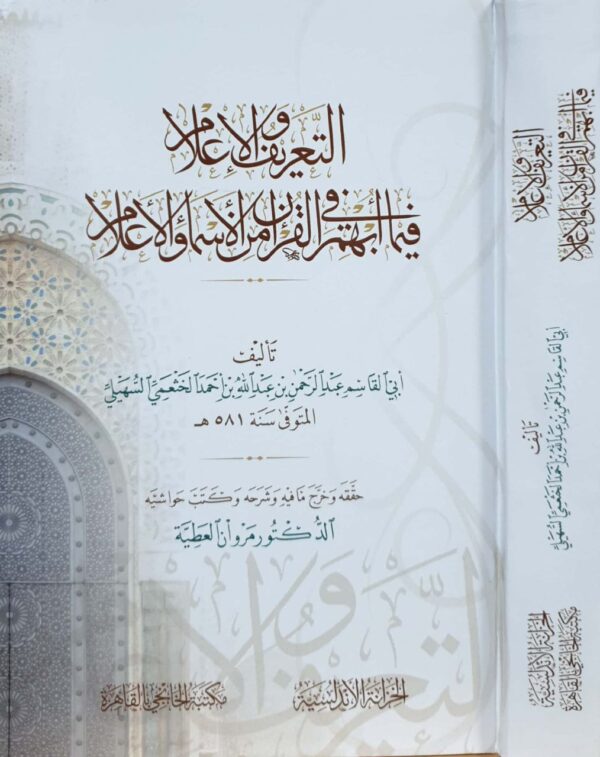 التعريف والإعلام
فيما أبهم في القرآن من الأسماء والأعلام
تأليف
أبي القاسم عبد الرحمن بن عبد الله بن أحمد الخثعمي السهيلي
المتوفى سنة ٥٨١ هـ
حققه وخرج ما فيه وشرحه وكتب حواشيه
الدكتور مروان العطية
الخزانة الأندلسية
مكتبة الخانجي بالقاهرة
التعريف والإعلام
فيما أبهم في القرآن من الأسماء والأعلام
تأليف
أبي القاسم عبد الرحمن بن عبد الله بن أحمد الخثعمي السهيلي
الخزانة الأندلسية
مكتبة الخانجي بالقاهرة